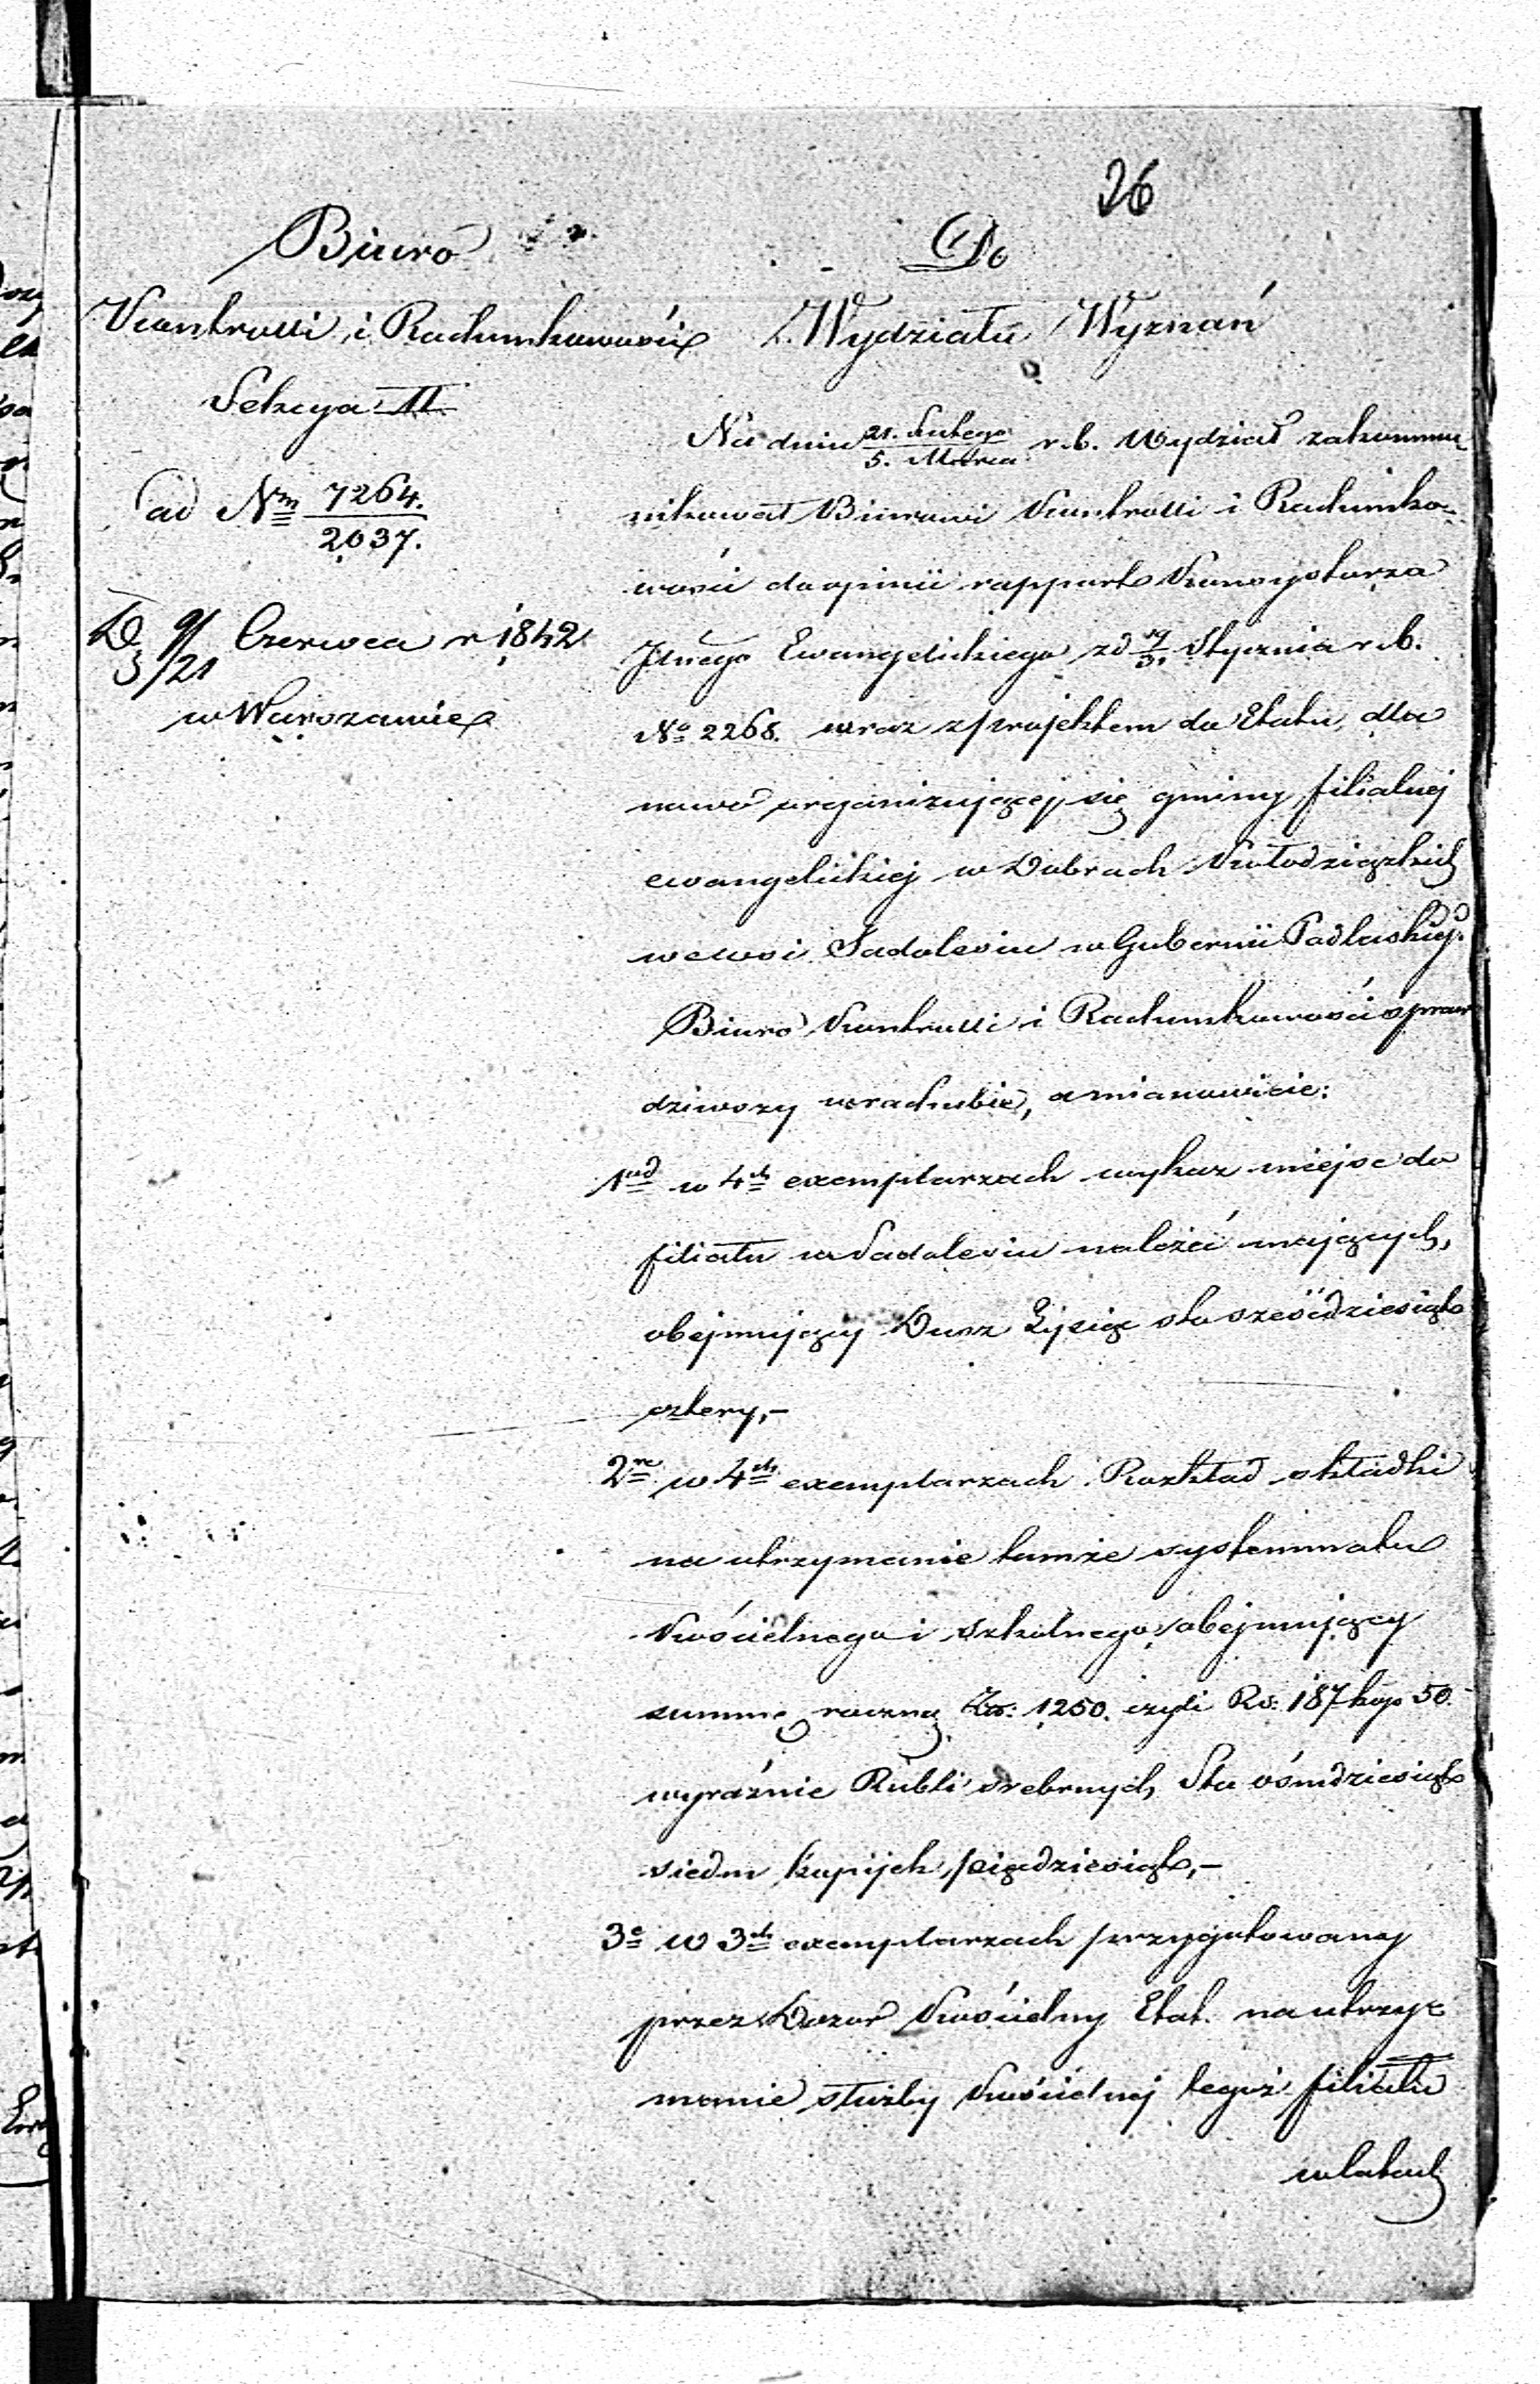 26
Biuro
Kontrolli i Rachunkowości
Sekcya II.
ad Nm 7264.
2037.
D. 9/21 Czerwca r 1842
w Warszawie
Do
Wydziału Wyznań
Na dniu 21. Lutego / 5. Marca r. b. Wydział zakommu
nikował Biurowi Kontrolli i Rachunko-
wości do opinii rapport Konsystorza
Jlnego Ewangelickiego z d 19/31 Stycznia r. b.
No 2268. wraz z projektem do Etatu, dla
nowo organizującej się gminy filialnej
ewangelickiej w Dobrach Kołodziązkich
we wsi Sadolesiu w Gubernii Podlaskiej.
Biuro Kontrolli i Rachunkowości spraw
dziwszy w rachubie, a mianowicie:
1mo w 4ch exemplarzach wykaz miejsc do
filiału w Sadolesiu należeć mających,
obejmujący Dusz Tysiąc sto sześćdziesiąt
cztery,-
2re w 4ch exemplarzach Rozkład składki
na utrzymanie tamże systemmatu
Kościelnego i szkolnego, obejmujący
summę roczną Zł: 1250. czyli Rs: 187 kop 50.
wyraźnie Rubli srebrnych Sto ośmdziesiąt
siedm kopijek pięćdziesiąt,-
3e w 3ch exemplarzach przygotowany
przez Dozór Kościelny Etat na utrzy-
manie służby Kościelnej tegoż filiału
w latach